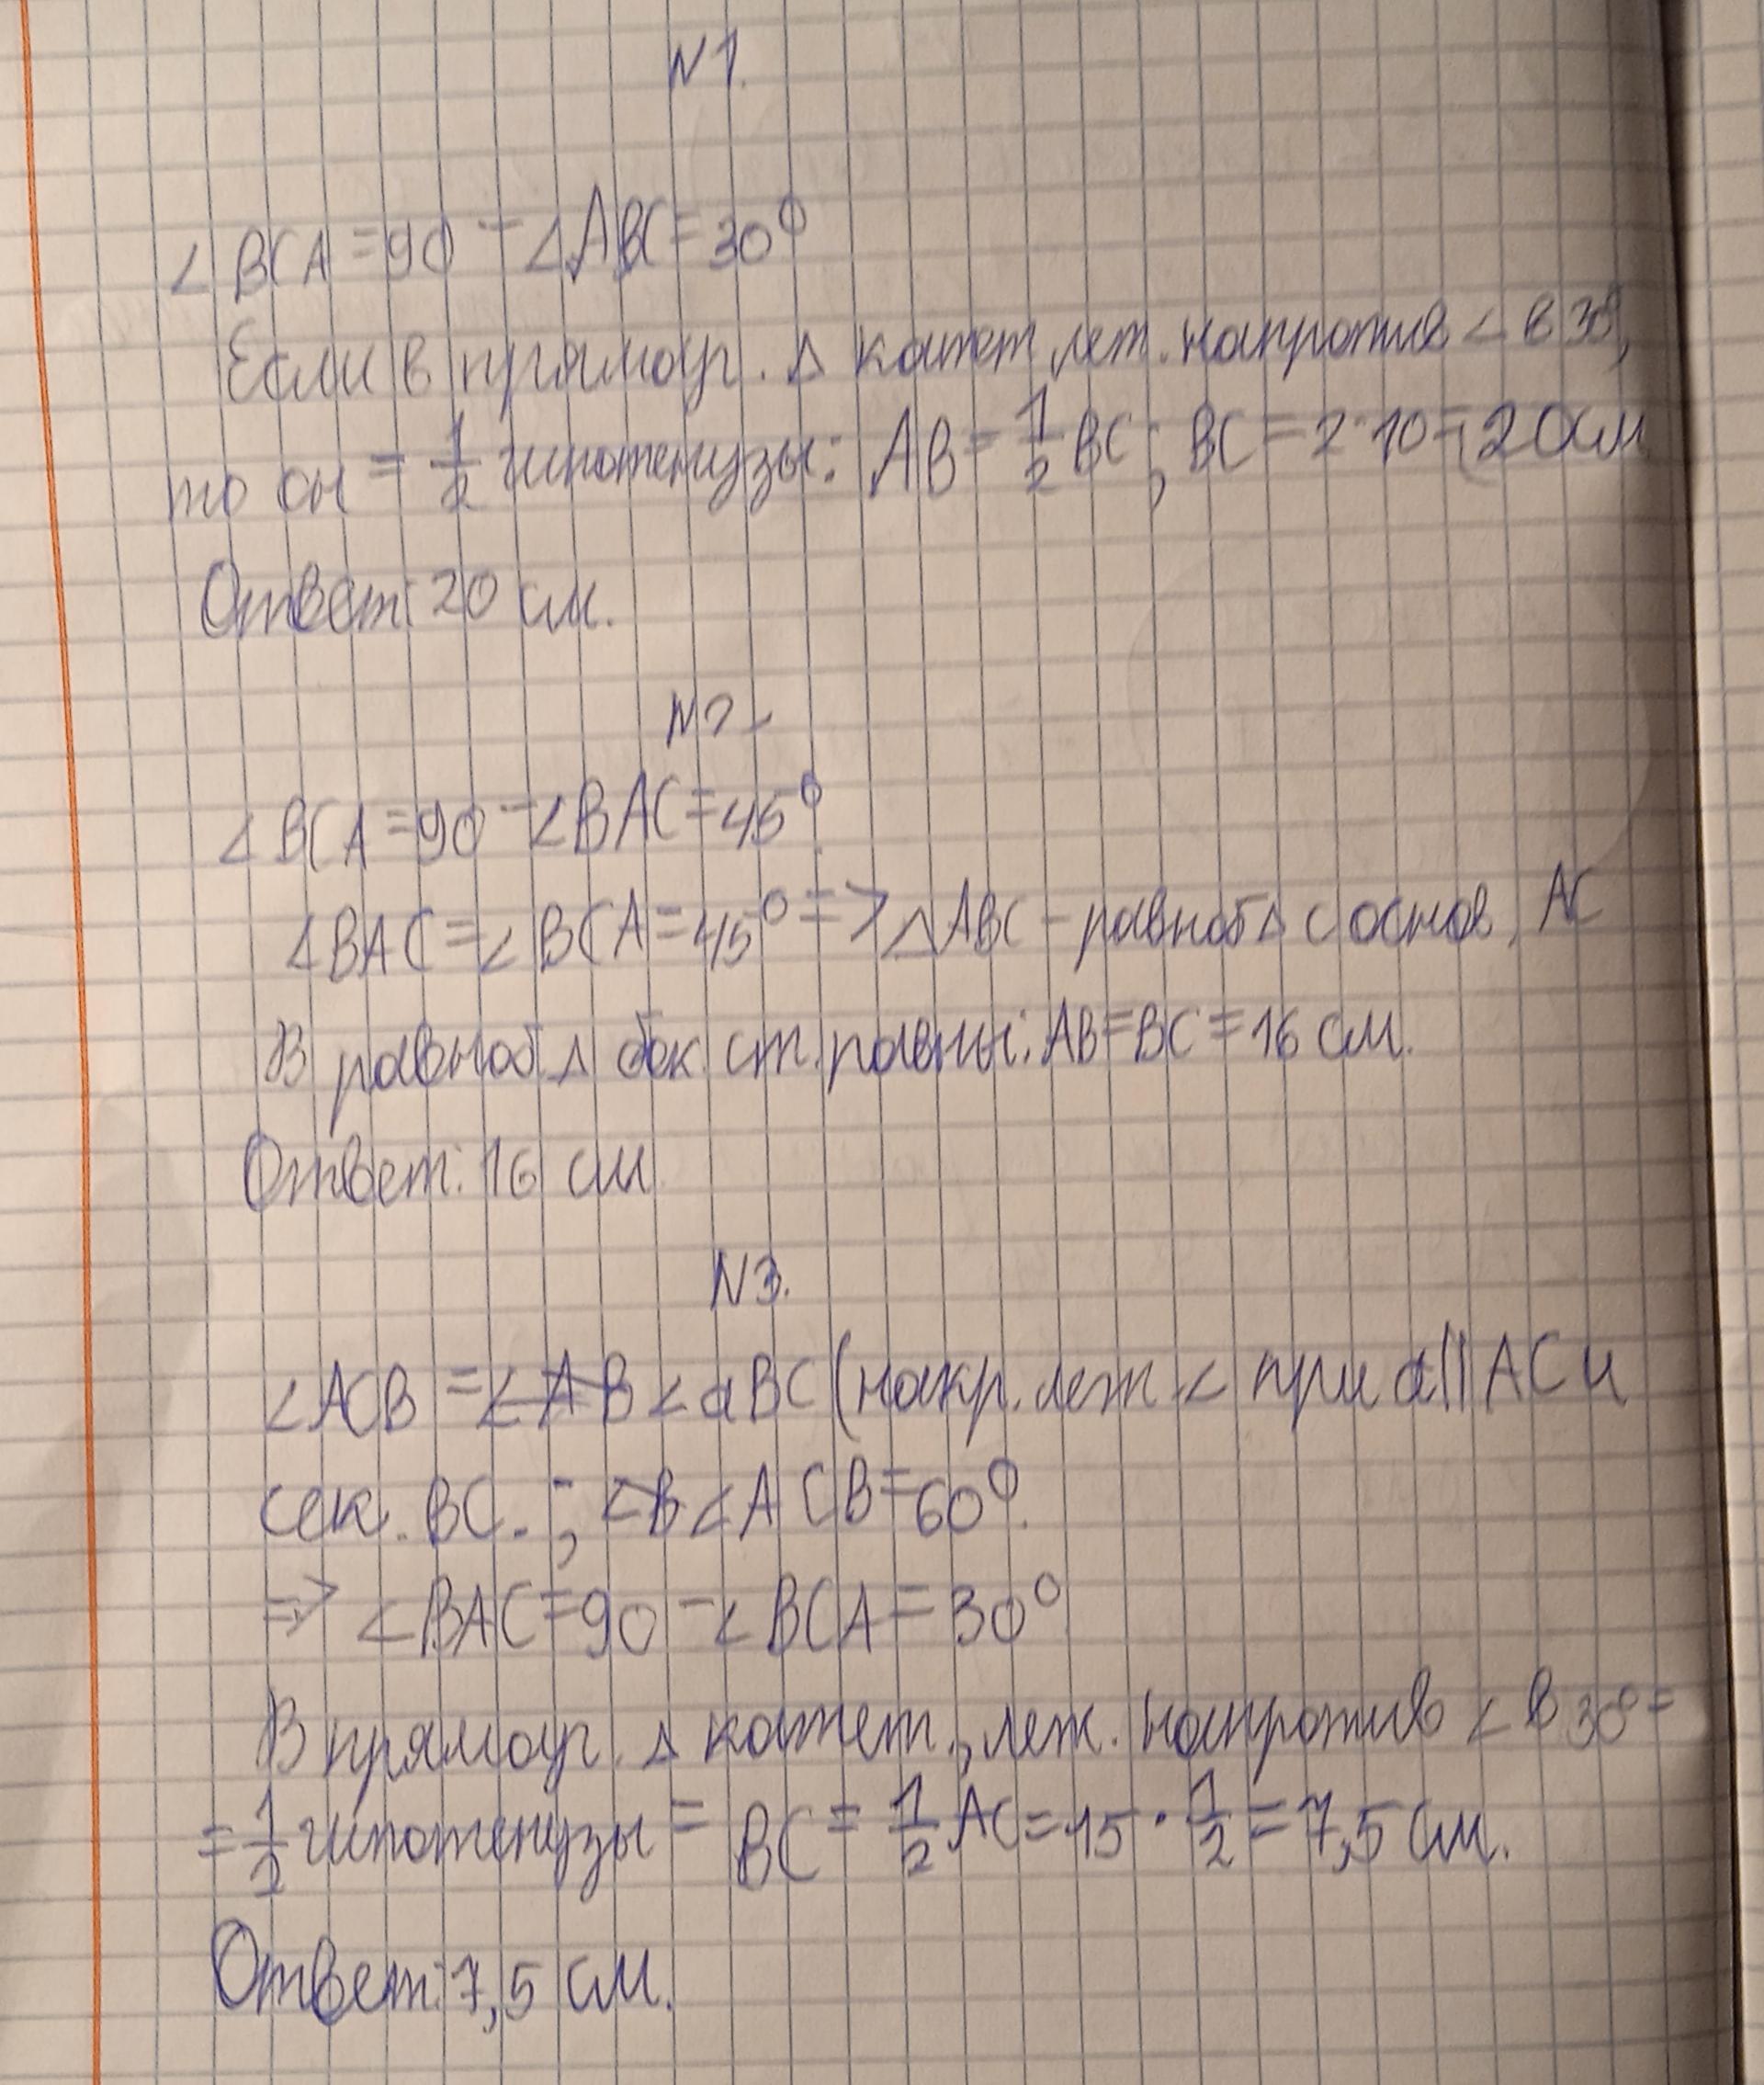 N1.
∠BCA = 90 - ∠ABC = 30°
Если в прямоуг. △ катет леж. напротив ∠ в 30°,
то он = 1/2 гипотенузы: AB = 1/2 BC; BC = 2·10 = 20см
Ответ: 20 см.
N2.
∠BCA = 90 - ∠BAC = 45°.
∠BAC = ∠BCA = 45° => △ABC - равноб △ с основ. AC
В равноб △ бок. ст. равны: AB = BC = 16 см.
Ответ: 16 см
N3.
∠ACB = ∠AB ∠aBC (накр. леж ∠ при a || AC и
сек. BC. ; ∠B ∠ACB = 60°.
=> ∠BAC = 90 - ∠BCA = 30°
В прямоуг. △ катет, леж. напротив ∠ в 30° =
= 1/2 гипотенузы = BC = 1/2 AC = 15 · 1/2 = 7,5 см.
Ответ: 7,5 см.